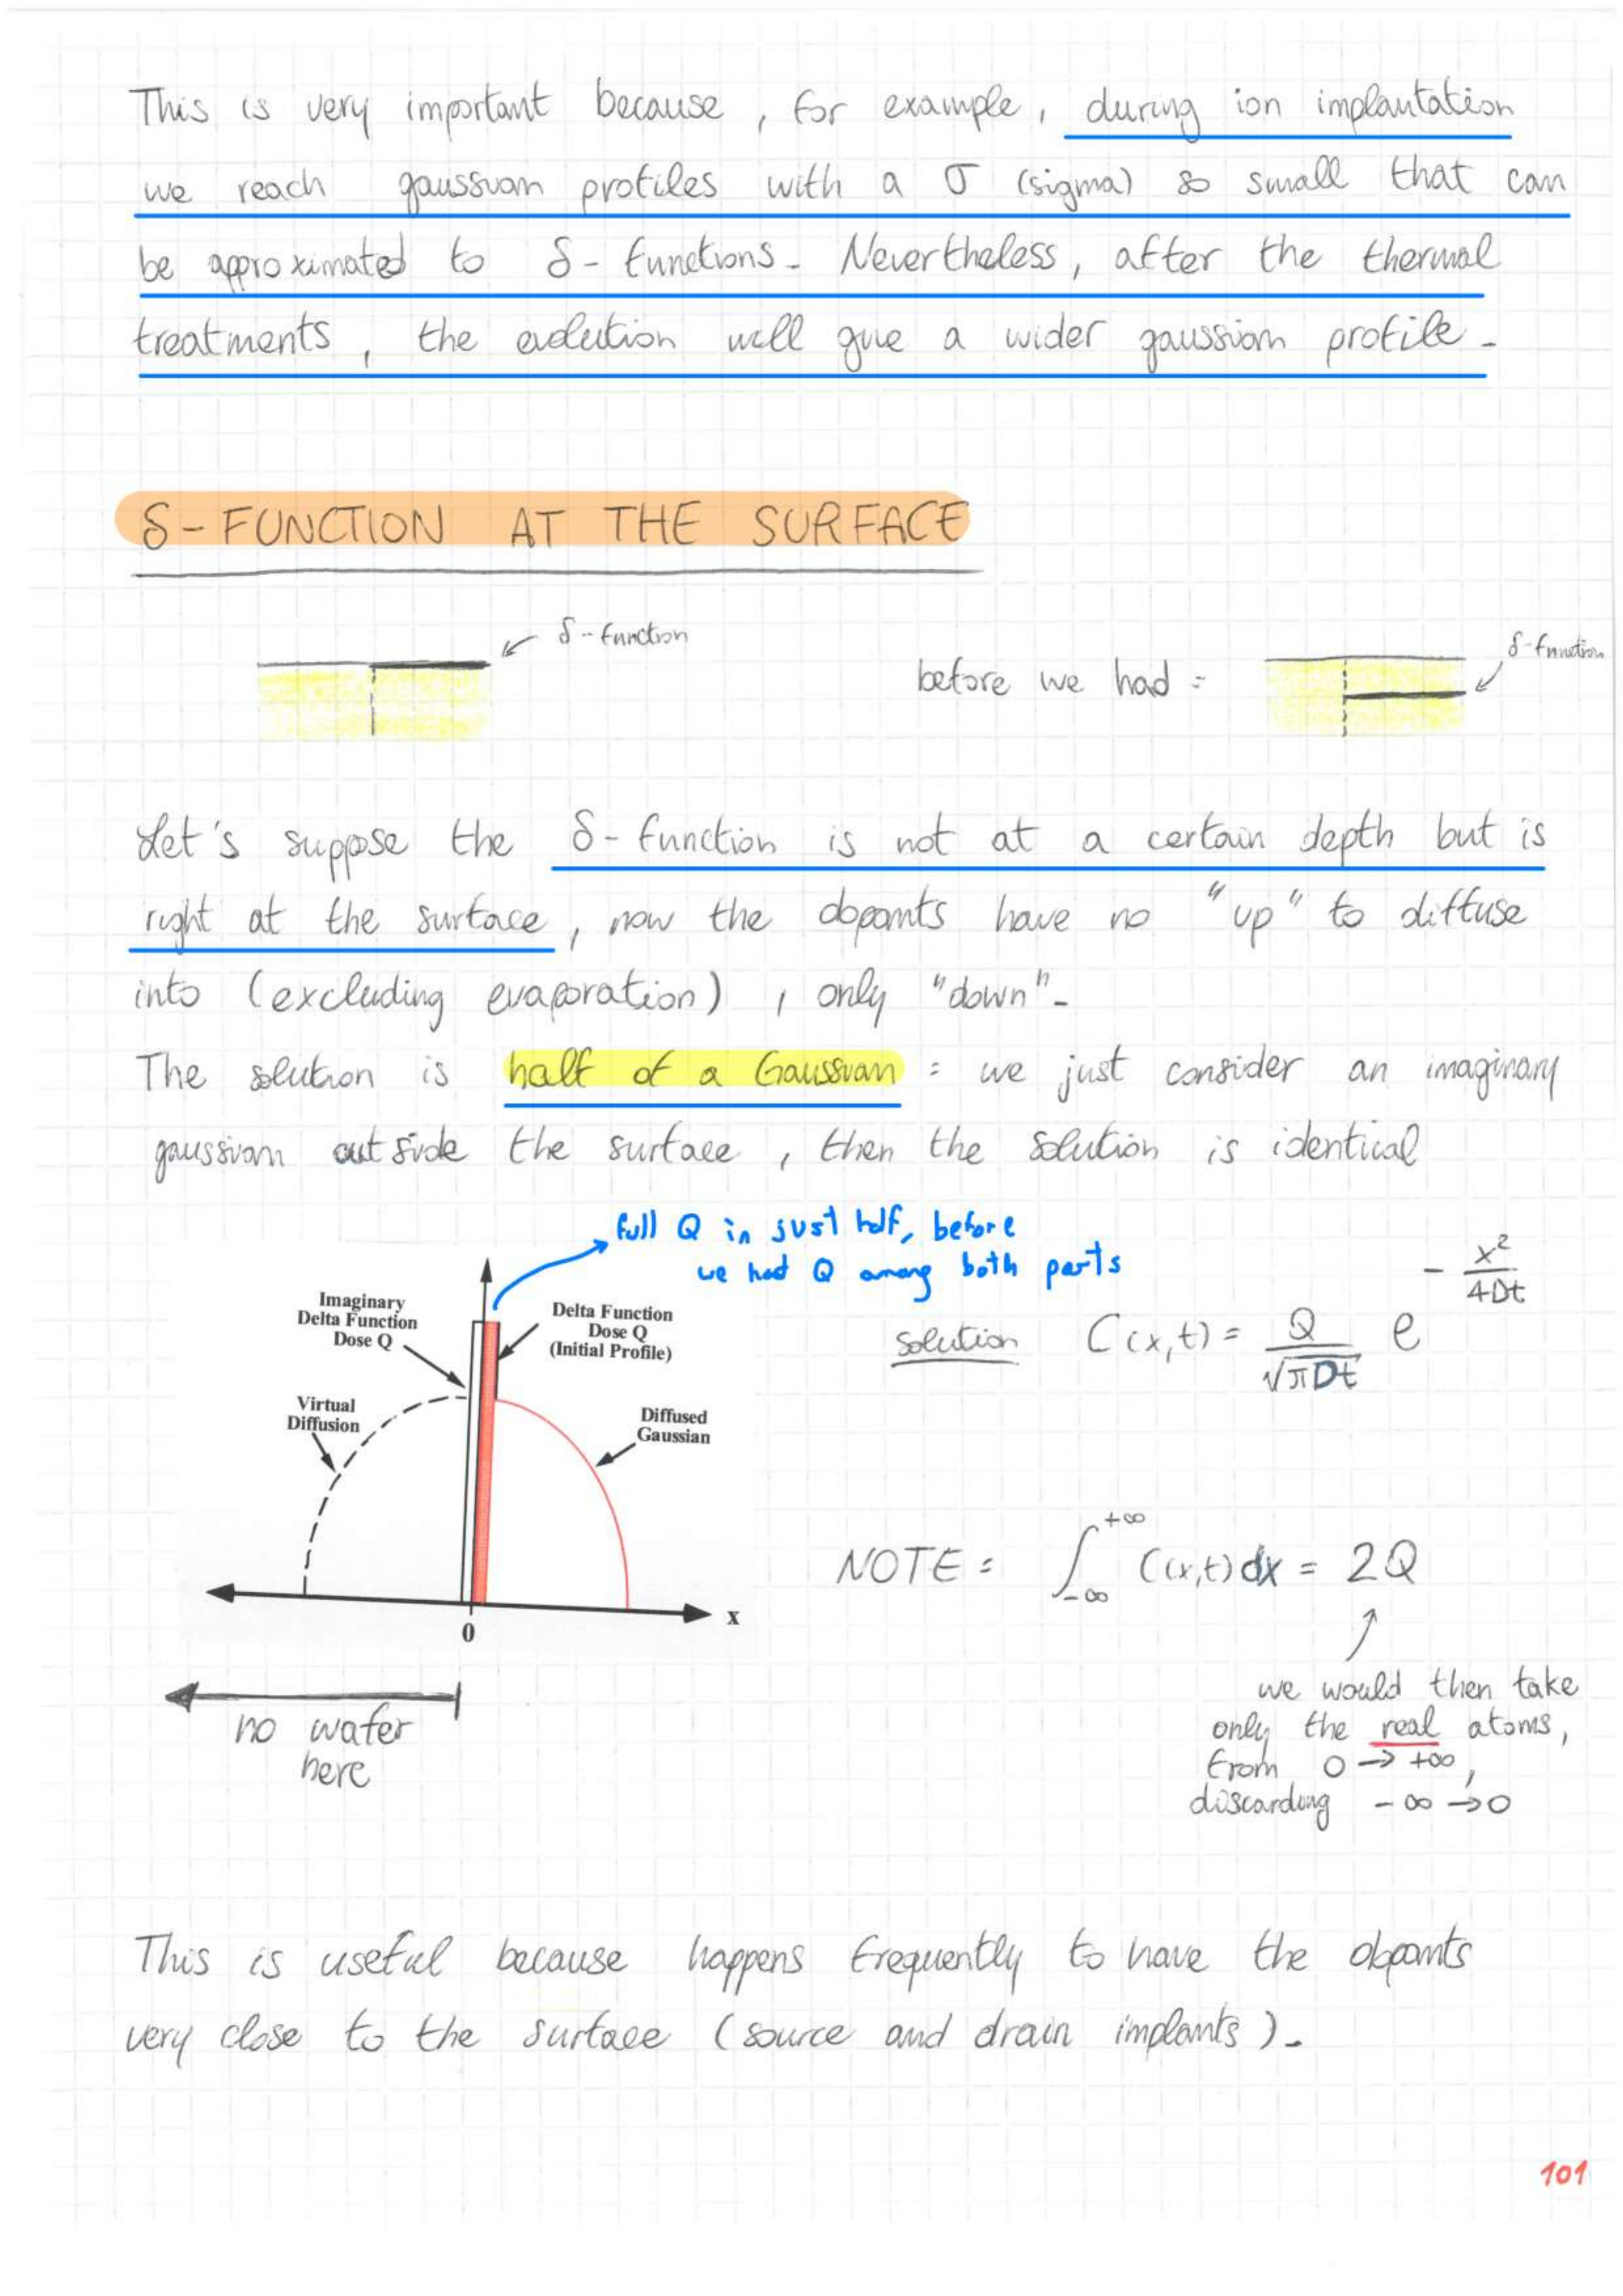 This is very important because, for example, during ion implantation
we reach gaussian profiles with a σ (sigma) so small that can
be approximated to δ-functions. Nevertheless, after the thermal
treatments, the evolution will give a wider gaussian profile.
δ-FUNCTION AT THE SURFACE
δ-function
before we had:
δ-function
Let's suppose the δ-function is not at a certain depth but is
right at the surface, now the dopants have no "up" to diffuse
into (excluding evaporation), only "down".
The solution is half of a Gaussian: we just consider an imaginary
gaussian outside the surface, then the solution is identical
full Q in just half, before
we had Q among both parts
Imaginary
Delta Function
Dose Q
Delta Function
Dose Q
(Initial Profile)
Virtual
Diffusion
Diffused
Gaussian
x
0
no wafer
here
solution C(x,t) = Q/√πDt e^(-x²/4Dt)
NOTE: ∫_{-∞}^{+∞} C(x,t)dx = 2Q
we would then take
only the real atoms,
from 0 → +∞,
discarding -∞ → 0
This is useful because happens frequently to have the dopants
very close to the surface (source and drain implants).
101